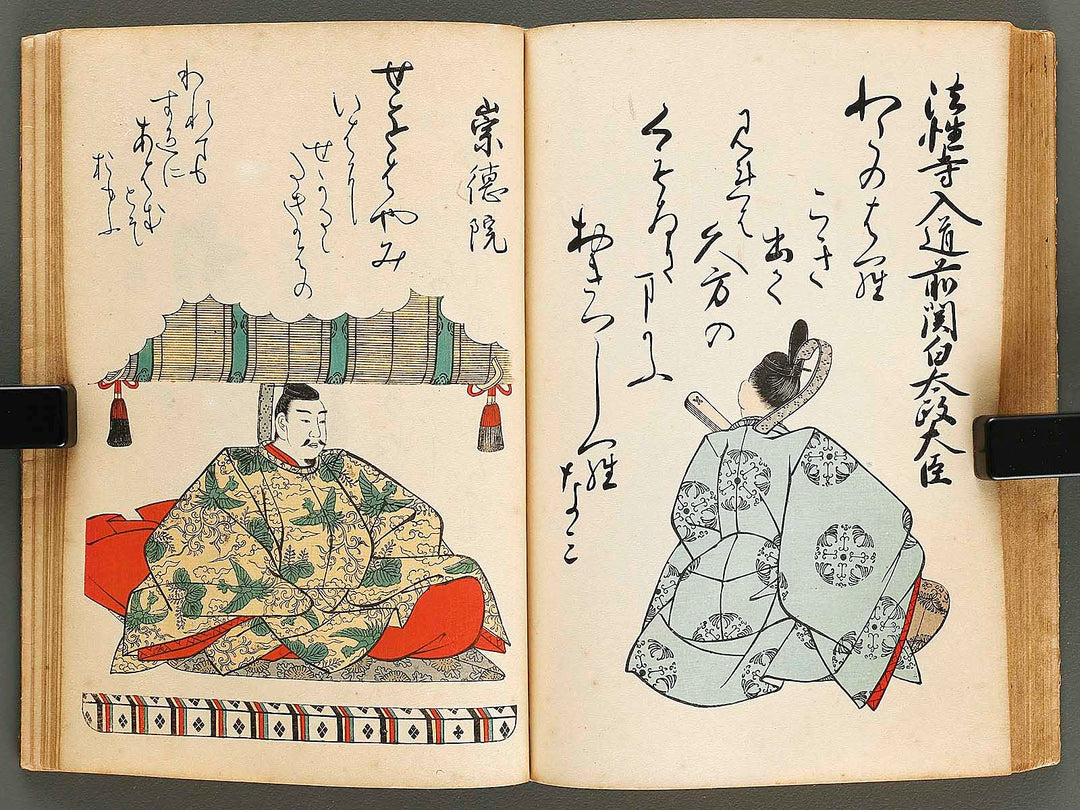 法性寺入道前関白太政大臣
わたのはら
こき
出て
見れは
久方の
くもゐに
まかふ
おきつしら
なミ
崇徳院
せをはやみ
いはに
せかるゝ
たきかはの
われても
すゑに
あはむ
とそ
おもふ